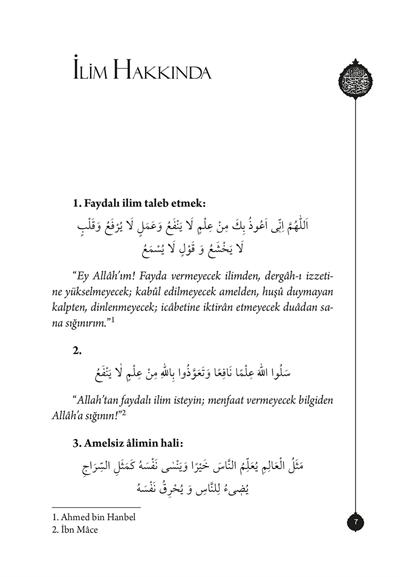 İLİM HAKKINDA
1. Faydalı ilim taleb etmek:
اَللّٰهُمَّ اِنِّى اَعُوذُ بِكَ مِنْ عِلْمٍ لَا يَنْفَعُ وَعَمَلٍ لَا يُرْفَعُ وَقَلْبٍ
لَا يَخْشَعُ وَ قَوْلٍ لَا يُسْمَعُ
“Ey Allâh’ım! Fayda vermeyecek ilimden, dergâh-ı izzeti-
ne yükselmeyecek; kabûl edilmeyecek amelden, huşû duymayan
kalpten, dinlenmeyecek; icâbetine iktirân etmeyecek duâdan sa-
na sığınırım.”1
2.
سَلُوا اللّٰهَ عِلْمًا نَافِعًا وَتَعَوَّذُوا بِاللّٰهِ مِنْ عِلْمٍ لَا يَنْفَعُ
“Allah’tan faydalı ilim isteyin; menfaat vermeyecek bilgiden
Allâh’a sığının!”2
3. Amelsiz âlimin hali:
مَثَلُ الْعَالِمِ يُعَلِّمُ النَّاسَ خَيْرًا وَيَنْسٰى نَفْسَهُ كَمَثَلِ السِّرَاجِ
يُضِىءُ لِلنَّاسِ وَ يُحْرِقُ نَفْسَهُ
1. Ahmed bin Hanbel
2. İbn Mâce
7